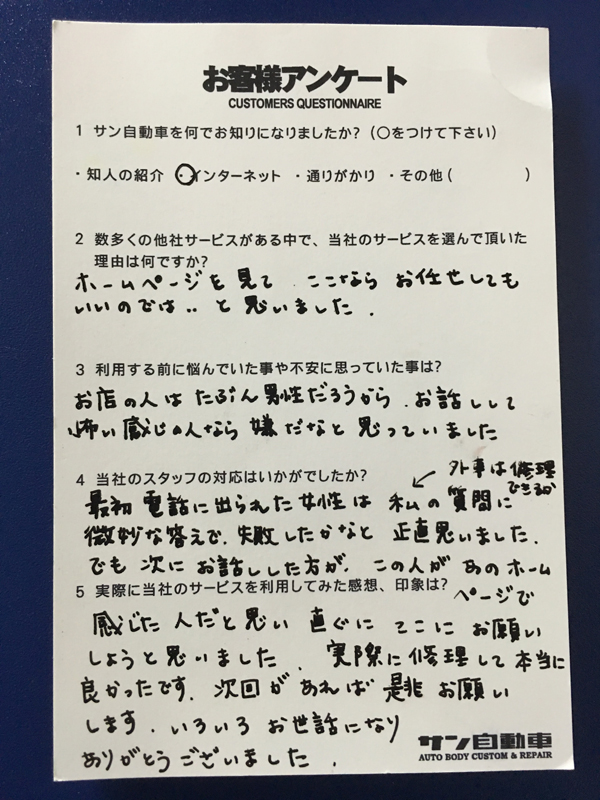 お客様アンケート
CUSTOMERS QUESTIONNAIRE
1 サン自動車を何でお知りになりましたか？（○をつけて下さい）
・知人の紹介 ・インターネット ・通りがかり ・その他（ ）
2 数多くの他社サービスがある中で、当社のサービスを選んで頂いた
理由は何ですか？
ホームページを見て ここなら お任せしても
いいのでは‥と思いました.
3 利用する前に悩んでいた事や不安に思っていた事は？
お店の人は たぶん男性だろうから. お話しして
怖い感じの人なら嫌だなと思っていました
4 当社のスタッフの対応はいかがでしたか？
外車は修理
できるか
最初 電話に出られた女性は 私の質問に
微妙な答えで. 失敗したかなと 正直思いました.
でも次に お話しした方が. この人が あのホーム
5 実際に当社のサービスを利用してみた感想、印象は？
ページで
感じた人だと思い 直ぐに ここに お願い
しようと思いました. 実際に修理して本当に
良かったです. 次回があれば是非お願い
します. いろいろ お世話になり
ありがとうございました.
サン自動車
AUTO BODY CUSTOM & REPAIR